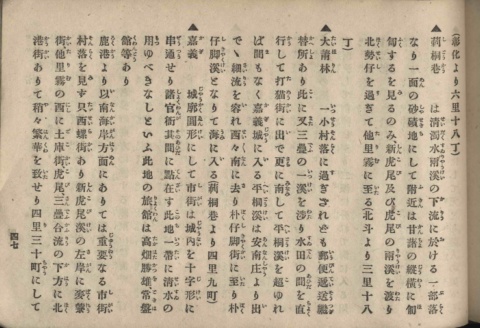 (彰化より六里十八丁)
▲莿桐巷 は淸濁水雨溪の下流に於ける一部落
なり一面の砂磧地にして附近は甘藷の縱橫に匍
匐するを見るのみ新虎尾及び虎尾の兩溪を渡り
北勢仔を過ぎて他里霧に至る北斗より三里十八
丁)
▲大莆林 一小村落に過ぎされとも郵便遞送繼
替所あり此に叉三疊の一溪を涉り水田の間を直
行して打猫街に出で更に南して平桐溪を超ゆれ
ば間もなく嘉義城に入る平桐溪は安南庄より出
でゝ細流を容れ西々南に去り朴仔脚街に至り朴
仔脚溪となりて海に入る(莿桐巷より四里九町)
▲嘉義 城廓圓形にして市街は城内を十字形に
串通せり諸官衙其間に點在す此地一帶に淸水の
用ゆべきなしといふ此地の旅館は高畑勝雄常盤
館等あり
鹿港より以南海岸方面にありては重要なる市街
村落を見す只西螺街あり新虎尾溪の左岸に麥藔
街他里霧の西に土庫街虎尾三疊合流の下方に北
港街ありて稍々繁華を致せり四里三十町にして
四七